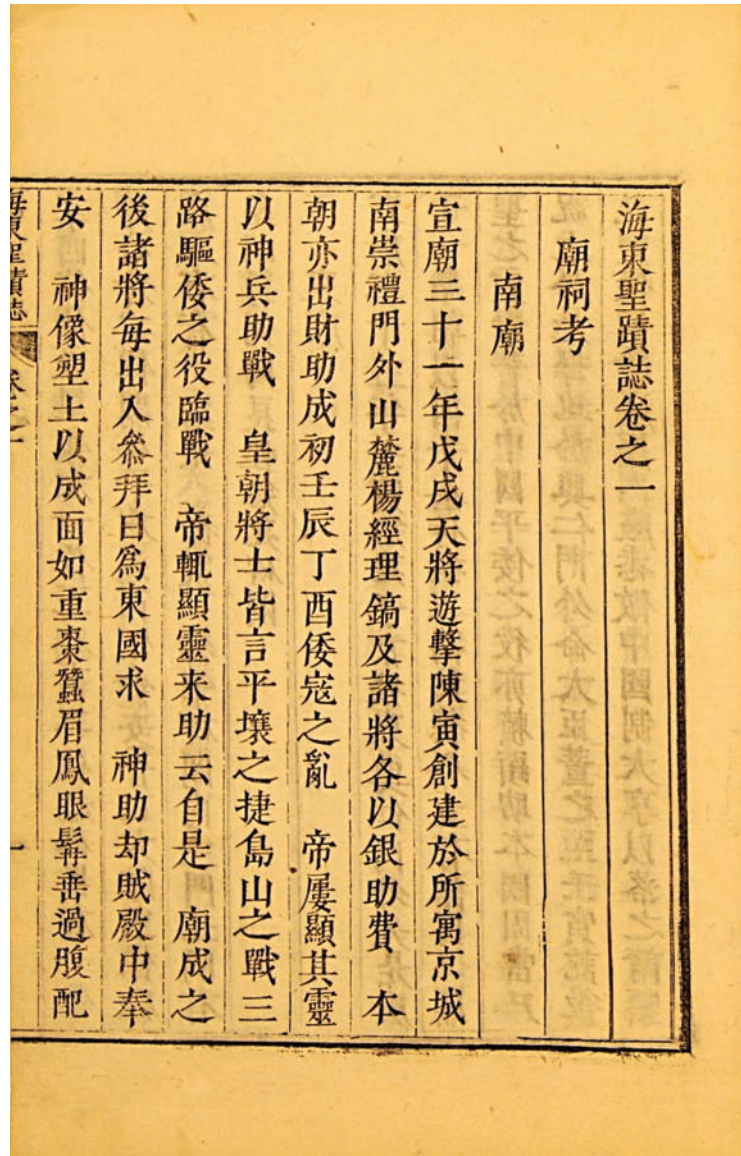 海東聖蹟誌卷之一
廟祠考
南廟
宣廟三十一年戊戌天將遊擊陳寅創建於所寓京城
南崇禮門外山麓楊經理鎬及諸將各以銀助費 本
朝亦出財助成初壬辰丁酉倭寇之亂 帝屢顯其靈
以神兵助戰 皇朝將士皆言平壤之捷島山之戰三
路驅倭之役臨戰 帝輒顯靈来助云自是 廟成之
後諸將每出入叅拜曰爲東國求 神助却賊殿中奉
安 神像塑土以成面如重棗蠶眉鳳眼髯垂過腹配
海東聖蹟誌 卷之一 一